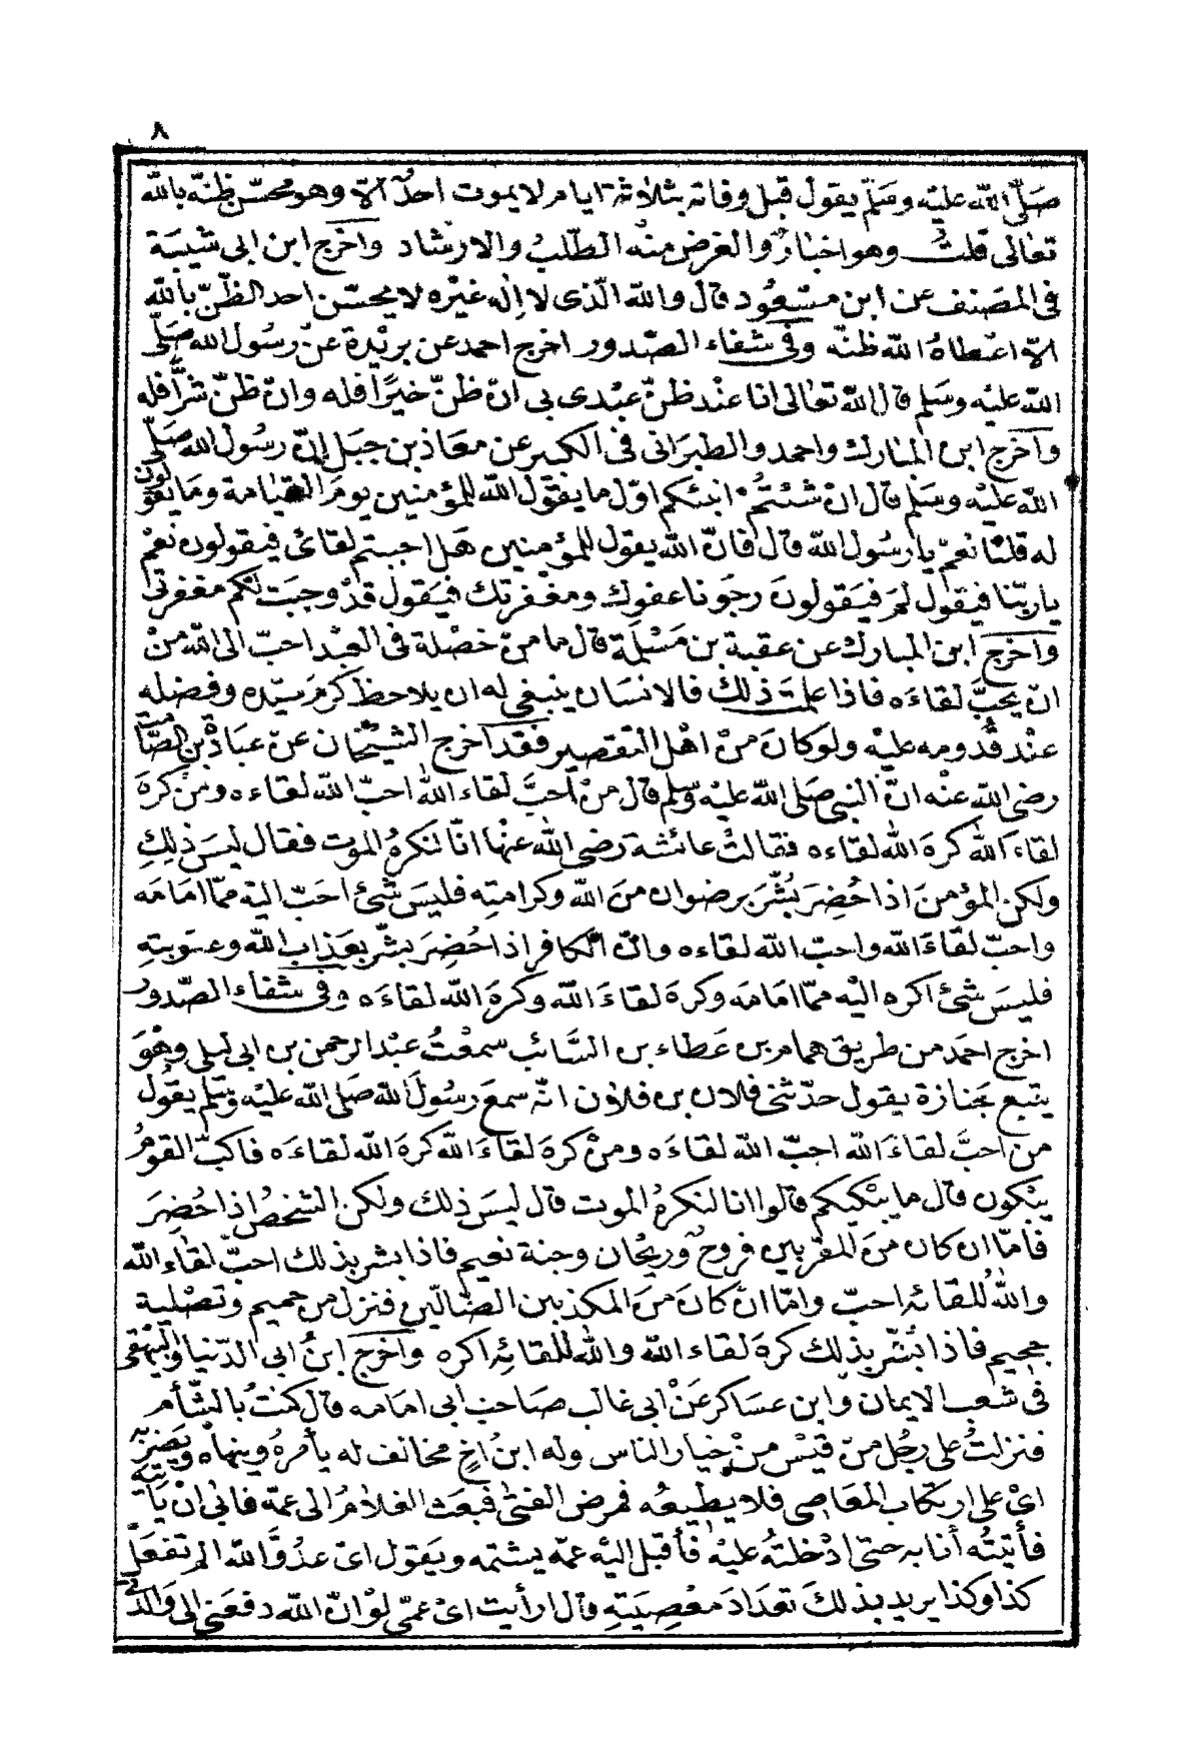 ٨
صَلَّى الله عليْه وسَلم يقول قبل وفاته بثلاثة ايام لا يموت احدٌ الّا وهو محسّن ظنّه بالله
تعالى قلتُ وهو اخبارٌ والغرض منه الطّلبُ والارشاد واخرج ابن ابى شيبَة
فى المصَنف عن ابن مسْعُود قال والله الّذى لا اِله غيْره لا يحسّن احد الظنّ بالله
الّا اعْطاهُ الله ظنّه وفى شفاء الصّدور اخرج احمد عن بريْدة عنْ رسُول الله صَلّى
الله عليْه وسَلم قال الله تعالى انا عنْد ظنّ عبْدى بى انْ ظنّ خيرًا فله وانْ ظنّ شرًّا فله
واَخرج ابن المبارك واحمد والطبرَانى فى الكبير عن معَاذ بن جبَل انّ رسُول الله صَلّى
الله عليْه وسَلم قال انْ شئتُمْ انبئكم اوّل ما يقول الله للمؤمنين يومَ القيَامة ومَا يقولون
له قلنَا نعمْ يا رسُول الله قال فانّ الله يقول للمؤمنين هَل احببتم لقائى فيقولون نعَمْ
يا ربّنا فيقول لمَ فيَقولونَ رجَونا عفوك ومغفرتك فيَقول قدْ وجبَت لكم مغفرتى
واَخرج ابن المبارك عن عقبة بن مَسْلمة قال ما منْ خصْلة فى العبْد احبّ الى الله منْ
انْ يحبَّ لقاءَه فاذا علمتَ ذلك فالانسَان ينبغى له ان يلاحظ كرمَ سيّده وفضله
عنْد قُدومه عليْه ولو كانَ منْ اهْل التقصير فقد اَخرج الشيْخان عنْ عبَادة بن الصَّامت
رضى الله عنْه انّ النبى صَلى الله عليْه وسَلم قال منْ اَحبَّ لقاء الله احبّ الله لقاءه ومنْ كرهَ
لقاءَ الله كرهَ الله لقاءه فقالتْ عائشة رضى الله عنْها انّا لنكرهُ الموت فقال ليسَ ذلكِ
ولكن المؤمنَ اذا حُضِرَ بُشّرَ برضوان منَ الله وكرامتِه فليسَ شئ احَبّ اليْه ممّا امَامَه
واحبّ لقاءَ الله واحبّ الله لقاءه وانّ الكافر اذا حُضِرَ بشّر بعَذاب الله وعقوبتِه
فليسَ شئ اكره اليْه ممّا امَامَه وكرهَ لقاءَ الله وكرهَ الله لقاءَه وفى شفاء الصّدور
اخرج احمَد من طريق همام بن عَطاء بن السَّائب سمعْتُ عبْد الرحمن بن ابى ليلى وهْوَ
يتبع جَنازة يقول حدّثنى فلان بن فلان انّه سمعَ رسُولَ الله صَلى الله عليْه وسَلم يقُول
من احبَّ لقاءَ الله احبّ الله لقاءَه ومنْ كرهَ لقاءَ الله كرهَ الله لقاءَه فاكبّ القومُ
يبْكون قال ما يبْكيكم قالوا انا لنكرهُ الموت قال ليسَ ذلك ولكن الشخصُ اذا حُضِرَ
فامّا ان كان منَ المقرّبين فروحٌ وريْحان وجنة نعيم فاذا بشر بذلك احبّ لقاء الله
واللهُ للقائه احبّ وامّا انْ كانَ منَ المكذبين الضّالّين فنزل من حميم وتصْلية
جحيم فاذا بُشّر بذلك كرهَ لقاء الله والله للقائِه اكره واَخرج ابنُ ابى الدّنيا والبيْهقى
فى شعب الايمان وابن عسَاكر عَنْ ابى غالب صَاحب ابى امامه قال كنتُ بالشّأم
فنزلتُ على رجُل منْ قيْسْ منْ خيار الناس وله ابنُ اخٍ مخالف له يأمرهُ وينهاه ويَضربه
اىْ على ارتكاب المعَاصى فلا يطيعُه فمرض الفتى فبعَث الغلامُ الى عمّه فابى انْ يأتيَه
فأتيتُه أنا به حتى ادْخلتُه عليْه فأقبل اليْه عمّه يشتمه ويَقول اىْ عدُوَّ الله الم تفعَلْ
كذا وكذا يريد بذلكَ تعْدادَ معْصِيَتِه قال ارأيت اىْ عمّى لوْ انّ الله دفعَنى الى وَالدَتى